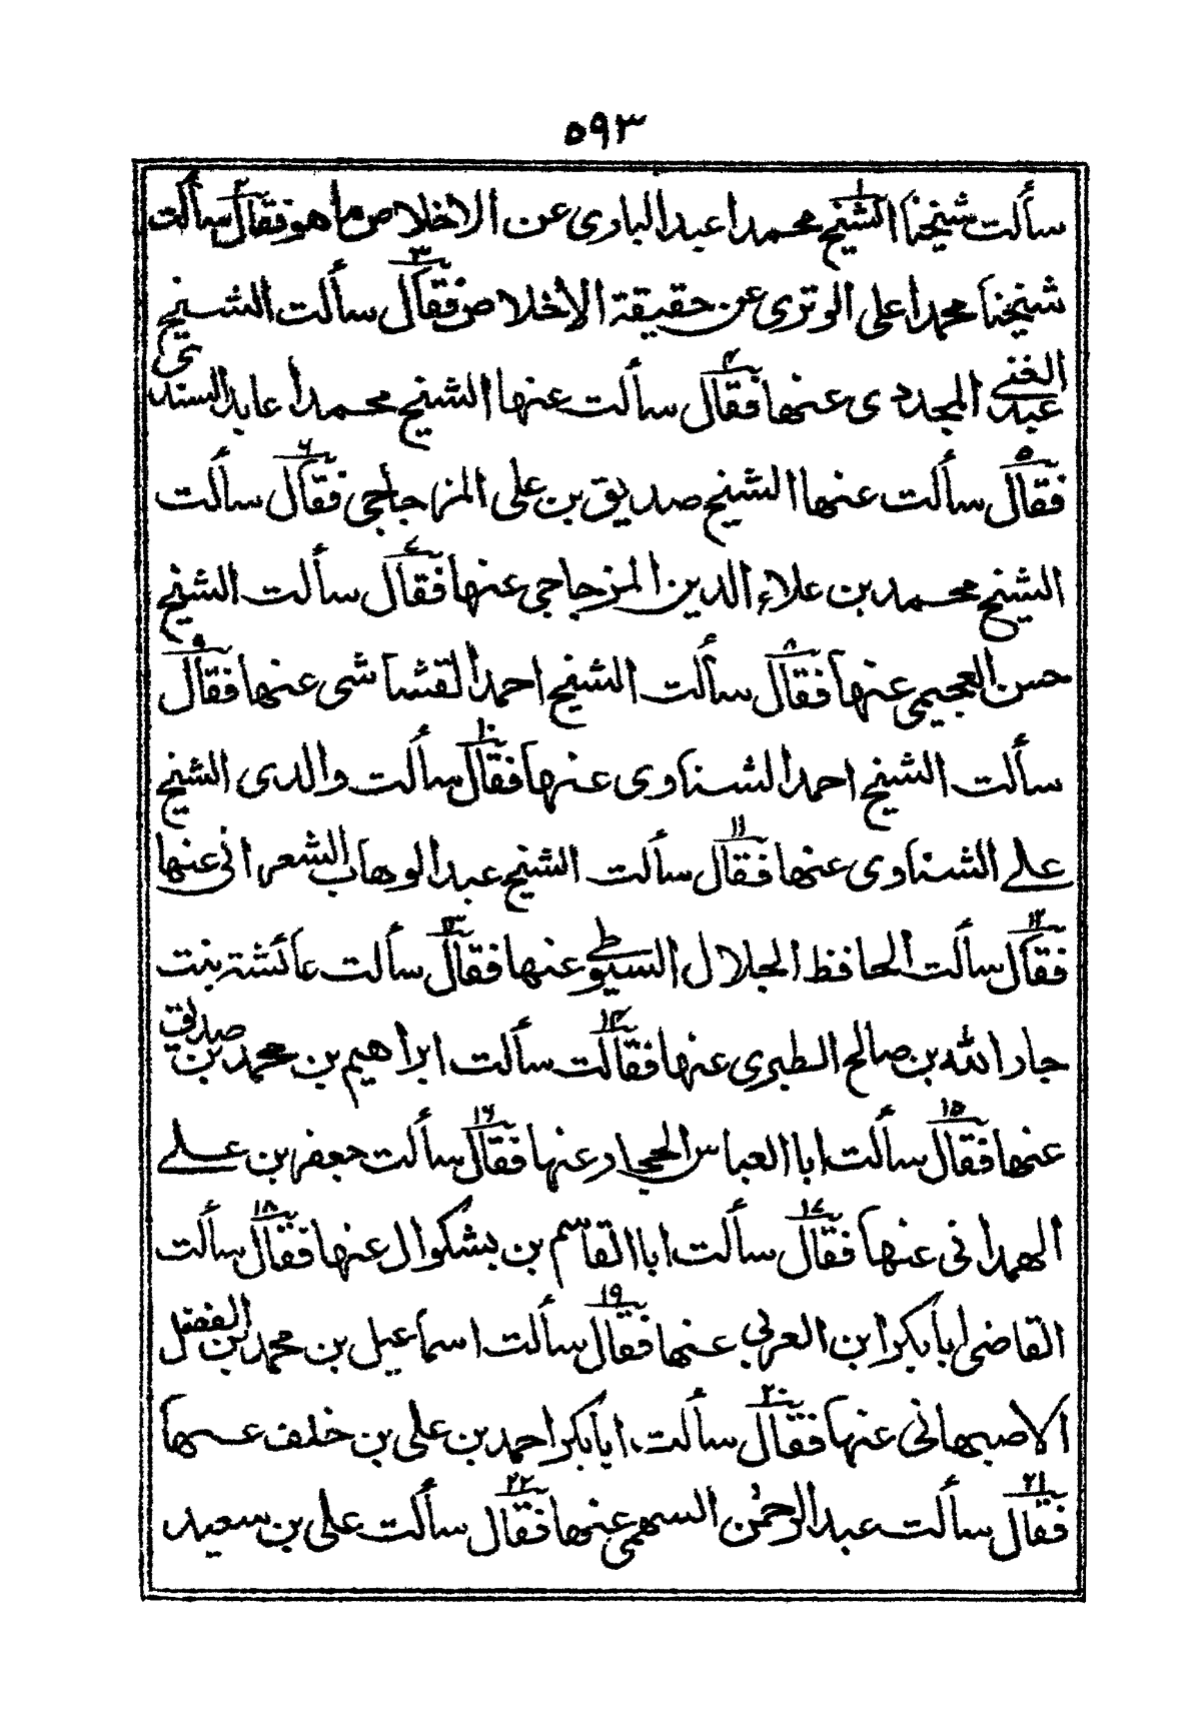 ٥٩٣
سألت شيخنا الشيخ محمدا عبد البارى عن الاخلاص ما هو فقال سألت
١ ٢
شيخنا محمدا على الوترى عن حقيقة الأخلاص فقال سألت الشيخ
٣
عبد الغنى المجددى عنها فقال سألت عنها الشيخ محمدا عابد السندى
٤
فقال سألت عنها الشيخ صديق بن على المزجاجى فقال سألت
٥ ٦
الشيخ محمد بن علاء الدين المزجاجى عنها فقال سألت الشيخ
٧
حسن العجيمى عنها فقال سألت الشيخ احمد القشاشى عنها فقال
٨ ٩
سألت الشيخ احمد الشناوى عنها فقال سألت والدى الشيخ
١٠
على الشناوى عنها فقال سألت الشيخ عبد الوهاب الشعرانى عنها
١١
فقال سألت الحافظ الجلال السيوطى عنها فقال سألت عائشة بنت
١٢ ١٣
جار الله بن صالح الطبرى عنها فقالت سألت ابراهيم بن محمد بن صديق
١٤
عنها فقال سألت ابا العباس الحجار عنها فقال سألت جعفر بن على
١٥ ١٦
الهمدانى عنها فقال سألت ابا القاسم بن بشكوال عنها فقال سألت
١٧ ١٨
القاضى ابابكر ابن العربى عنها فقال سألت اسماعيل بن محمد بن الفضل
١٩
الاصبهانى عنها فقال سألت ابابكر احمد بن على بن خلف عنها
٢٠
فقال سألت عبد الرحمٰن السهمى عنها فقال سألت على بن سعيد
٢١ ٢٢